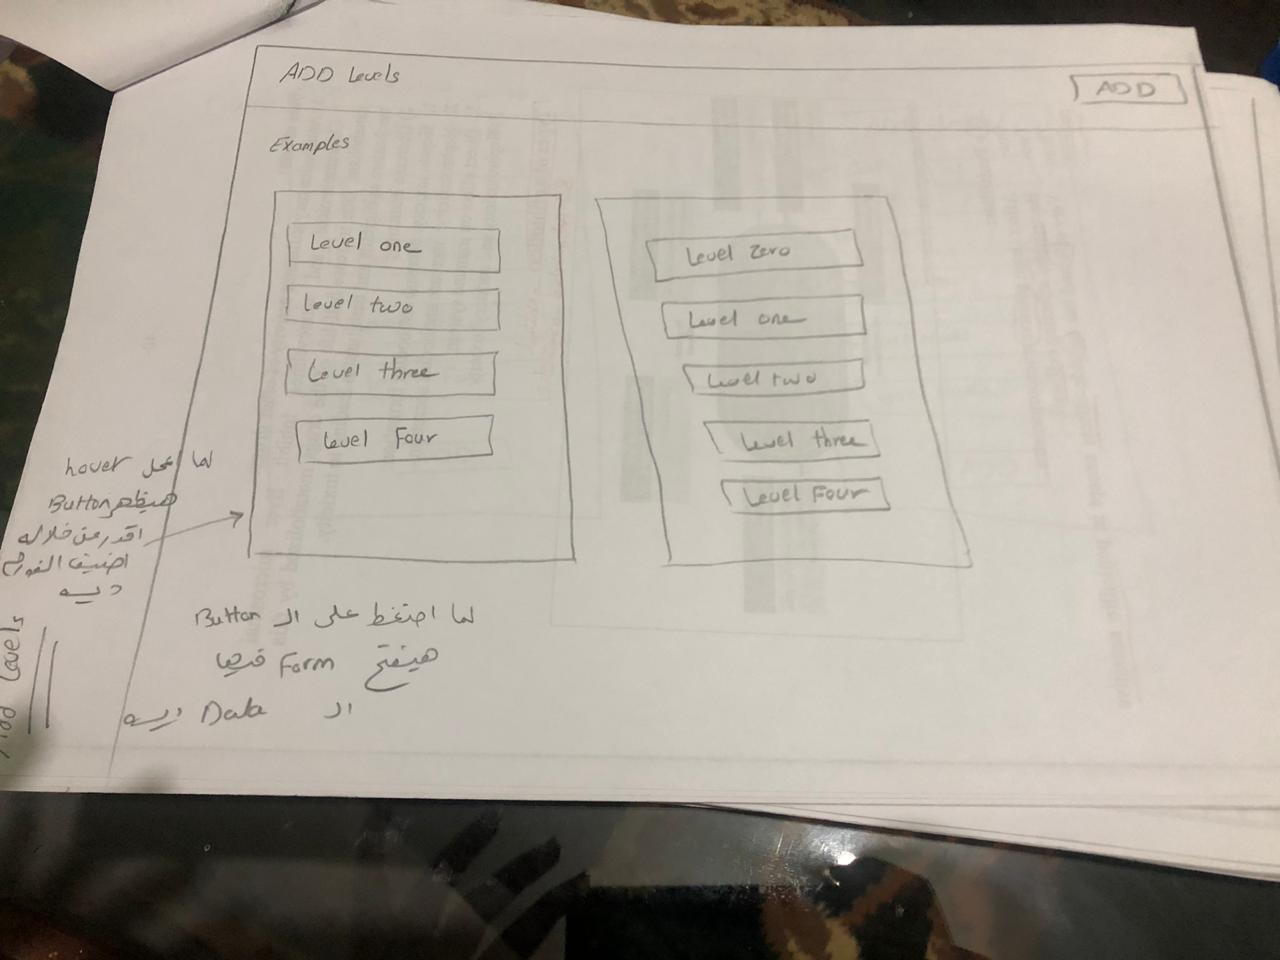 ADD Levels
ADD
Examples
Level one
Level two
Level three
Level Four
Level Zero
Level one
Level two
Level three
Level Four
لما اعمل hover
هيظهر Button
اقدر من خلاله
اضيف الفورم
ديه
لما اضغط على الـ Button
هيفتح Form فيها
الـ Data ديه
Add Levels